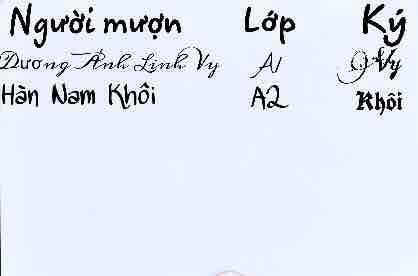 Người mượn Lớp Ký
Dương Ánh Linh Vy A1 Vy
Hàn Nam Khôi A2 Khôi